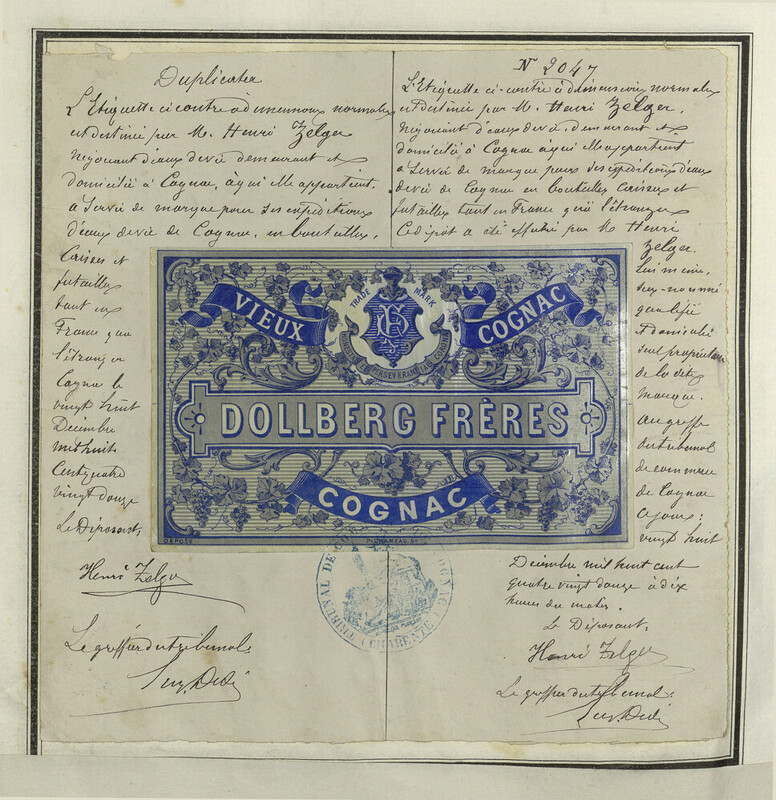 Duplicata
L'Etiquette ci contre à dimensions normales
est destinée par M. Henri Zelger
Négociant d'eaux de vie demeurant et
domicilié à Cognac, à qui elle appartient,
à servir de marque pour ses expéditions
d'eaux de vie de Cognac, en bouteilles,
Caisses et
futailles
tant en
France qu'à
l'étranger
Cognac le
vingt huit
Décembre
mil huit
Cent quatre
vingt douze
Le Déposant,
Henri Zelger
Le greffier du tribunal:
N° 2047
L'Etiquette ci-contre à dimensions normales
est destinée par M. Henri Zelger,
Négociant d'eaux de vie, demeurant et
domicilié à Cognac à qui elle appartient
à servir de marque pour ses expéditions d'eaux
de vie de Cognac en bouteilles Caisses et
futailles tant en France qu'à l'étranger
Ce dépôt a été effectué par M. Henri
Zelger
lui même,
sus-nommé
qualifié
et domicilié
seul propriétaire
de la dite
marque.
au greffe
du tribunal
de commerce
de Cognac
ce jour:
vingt huit
Décembre mil huit cent
quatre vingt douze à dix
heures du matin.
Le Déposant,
Henri Zelger
Le greffier du tribunal:
TRADE MARK
VIEUX COGNAC
PERSEVERANCE
DOLLBERG FRÈRES
COGNAC
DÉPOSÉ
TRIBUNAL DE COGNAC
(CHARENTE)